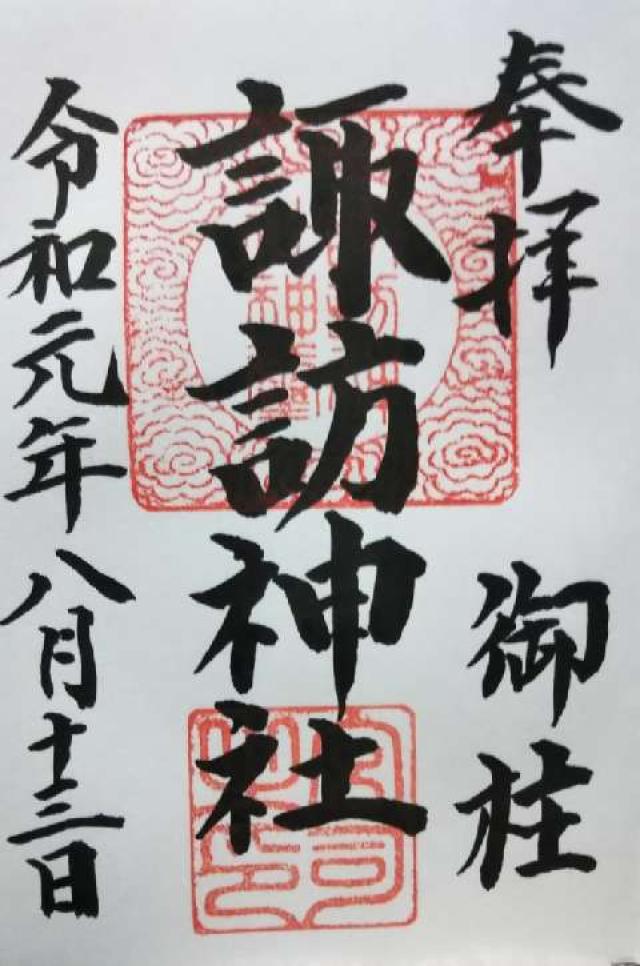 奉拝
御柱
諏訪神社
令和元年八月十三日